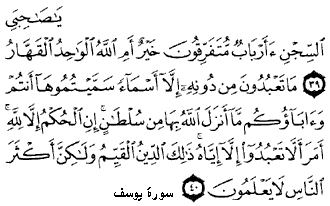 يَٰصَٰحِبَىِ
ٱلسِّجْنِ ءَأَرْبَابٌ مُّتَفَرِّقُونَ خَيْرٌ أَمِ ٱللَّهُ ٱلْوَٰحِدُ ٱلْقَهَّارُ
٣٩ مَا تَعْبُدُونَ مِن دُونِهِۦٓ إِلَّآ أَسْمَآءً سَمَّيْتُمُوهَآ أَنتُمْ
وَءَابَآؤُكُم مَّآ أَنزَلَ ٱللَّهُ بِهَا مِن سُلْطَٰنٍ ۚ إِنِ ٱلْحُكْمُ إِلَّا لِلَّهِ ۚ
أَمَرَ أَلَّا تَعْبُدُوٓا۟ إِلَّآ إِيَّاهُ ۚ ذَٰلِكَ ٱلدِّينُ ٱلْقَيِّمُ وَلَٰكِنَّ أَكْثَرَ
ٱلنَّاسِ لَا يَعْلَمُونَ ٤٠ سورة يوسف